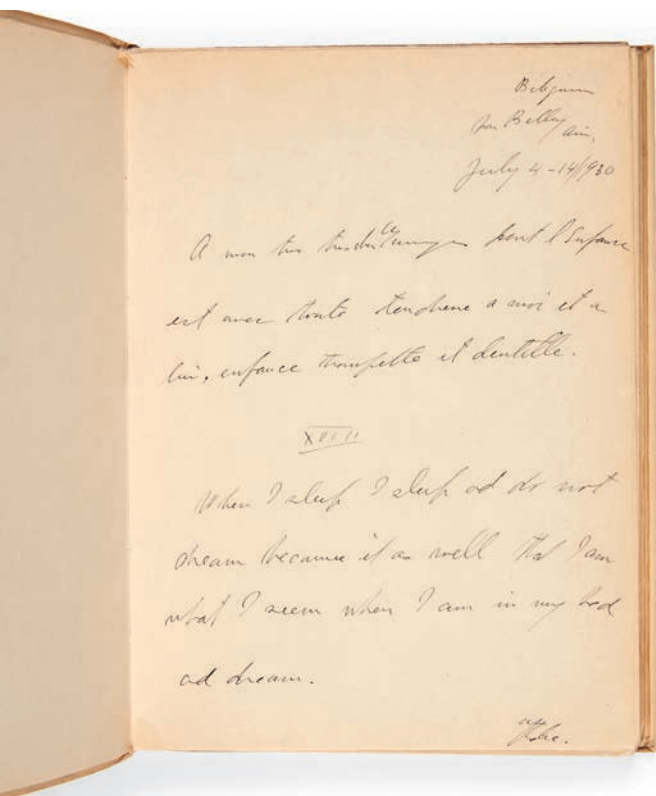 Bilignin
par Belley Ain.
July 4-14/1930
A mon tres tres cher dont l'Enfance
est avec toute tendresse a moi et a
lui, enfance trompette et dentelle.
XVIII
When I sleep I sleep and do not
dream because it as well that I am
what I seem when I am in my bed
and dream.